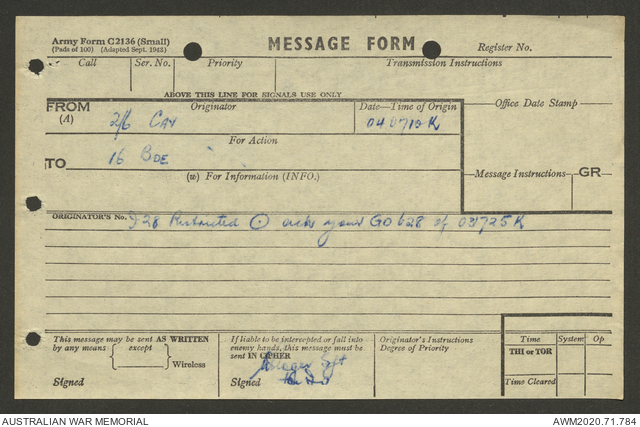 Army Form C2136 (Small)
(Pads of 100) (Adapted Sept. 1943)
MESSAGE FORM
Register No.
Call
Ser. No.
Priority
Transmission Instructions
ABOVE THIS LINE FOR SIGNALS USE ONLY
FROM
(A)
Originator
Date—Time of Origin
Office Date Stamp
2/6 CAV
040710K
For Action
TO
16 BDE
(w) For Information (INFO.)
Message Instructions
GR
ORIGINATOR'S No.
I 28 Restricted ⊙ ack your GO 628 of
This message may be sent AS WRITTEN
by any means
except
Wireless
Signed
If liable to be intercepted or fall into
enemy hands, this message must be
sent IN CIPHER
Signed
Sgt
Originator's Instructions
Degree of Priority
Time
System
Op
THI or TOR
Time Cleared
AUSTRALIAN WAR MEMORIAL
AWM2020.71.784